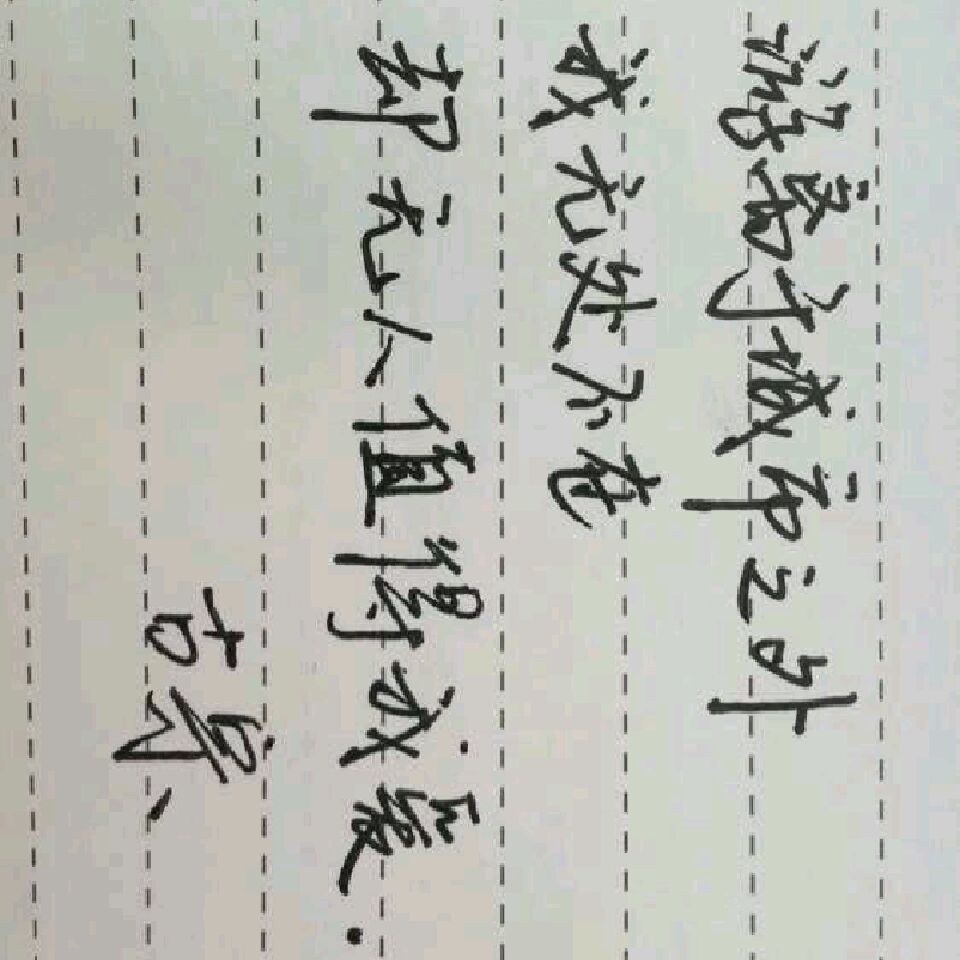 游离于城市之外
我无处不在
却无人值得我爱.
古